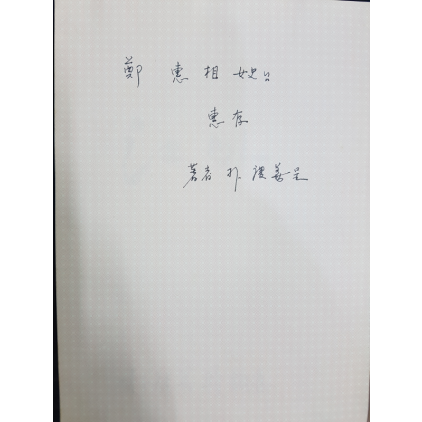 鄭 惠 相 女史
惠存
著者 朴 善呈